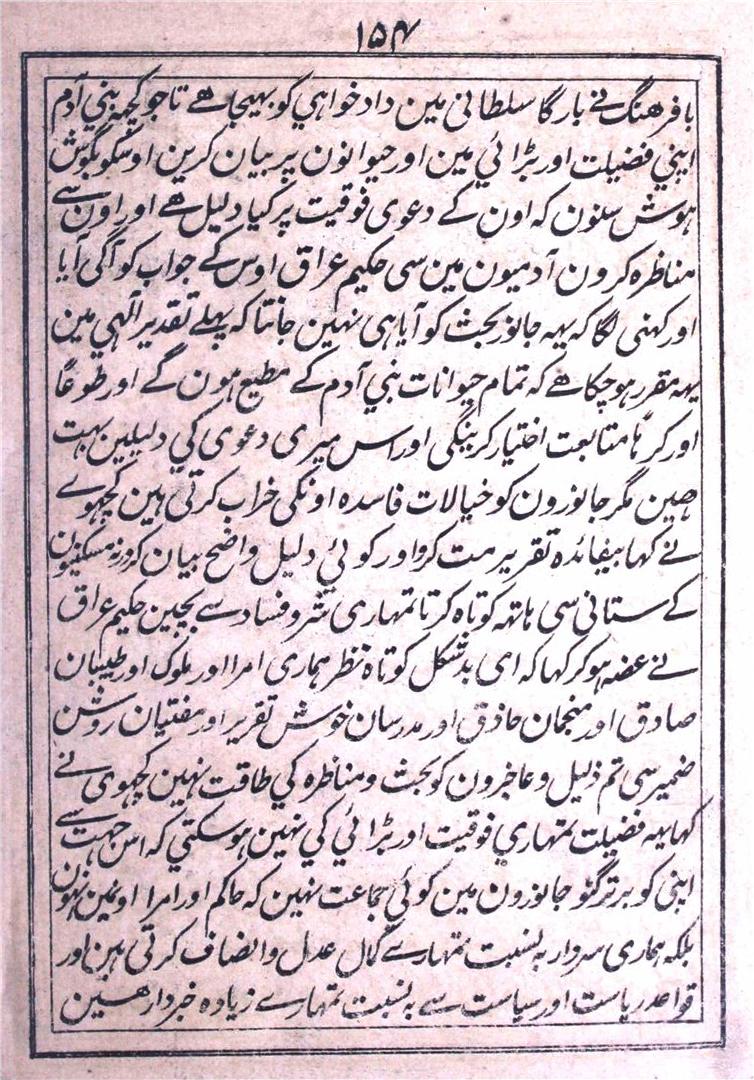 ۱۵۴
بافرهنگ نے بارگا سلطانی مین دادخواهي کو بهیجا هے تا جو کچه بني آدم
اپني فضیلت اور بڑائي مین اور حیوانون پر بیان کرین اوسکو بگوش
هوش سنون که اون کے دعوی فوقیت پر کیا دلیل هے اور اون سے
مناظره کرون آدمیون مین سی حکیم عراق اوس کے جواب کو آگی آیا
اور کهنی لگا که یهه جانور بحث کو آیا هی نهین جانتا که پهلے تقدیر الٰهي مین
یهه مقرر هوچکا هے که تمام حیوانات بني آدم کے مطیع هون گے اور طوعًا
اور کرهًا متابعت اختیار کرینگی اور اس میری دعوی کي دلیلین بهت
هین مگر جانورون کو خیالات فاسده اونکی خراب کرتی هین کچهوے
نے کها بیفائده تقریر مت کرو اور کوئي دلیل واضح بیان کرو ورنه مسکینون
کے ستانی سی هاتهه کوتاه کرتا تمهاری شر و فساد سے بچین حکیم عراق
نے غصه هوکر کها که ای بدشکل کوتاه نظر هماری امرا اور ملوک اور طبیبان
صادق اور منجمان حاذق اور مدرسان خوش تقریر اور مفتیان روشن
ضمیر سی تم ذلیل و عاجزون کو بحث و مناظره کي طاقت نهین کچهوی نے
کها یهه فضیلت تمهاري فوقیت اور بڑائي کي نهین هوسکتي که اس جهت سے
اپنی کو برتر گنو جانورون مین کوئي جماعت نهین که حاکم اور امرا اونمین نهون
بلکه هماری سردار به نسبت تمهارے کمال عدل و انصاف کرتی هین اور
قواعد ریاست اور سیاست سے به نسبت تمهارے زیاده خبردار هین